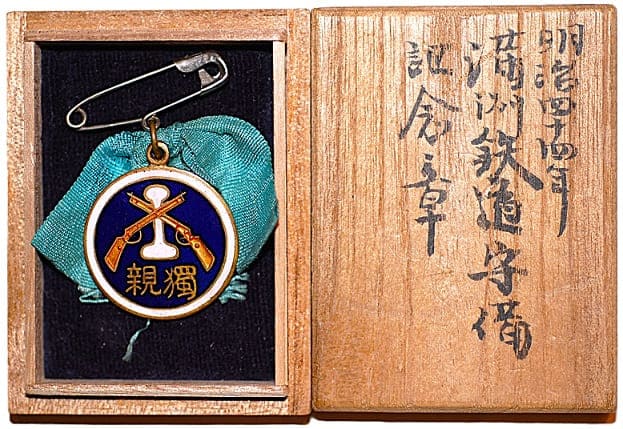 明治四十四年
満洲鉄道守備
記念章
獨親